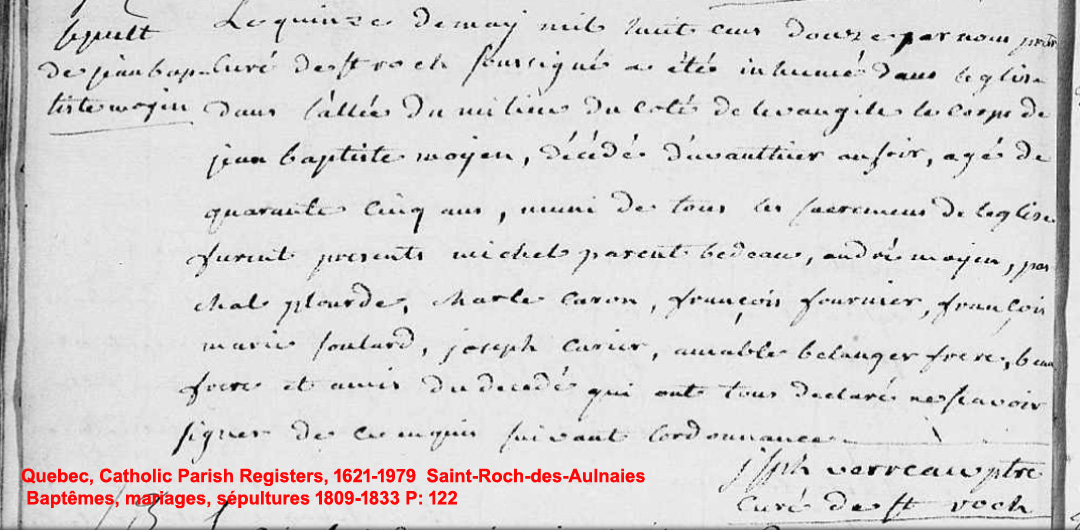 sepult
de jean bap-
tiste moyen
Le quinze de may mil huit cens douze par nous prtr
Curé de st roch soussigné a étés inhumé dans leglise
dans l'allée du milieu du coté de levangile le corps de
jean baptiste moyen, décédé d'avanthier au soir, agé de
quarante cinq ans, muni de tous les sacremens de leglise
furent presents michel parent bedeau, andré moyen, pas
chal plourde, charle caron, françois fournier, françois
marie soulard, joseph carier, amable belanger frere, beau
frere et amis du decedé qui ont tous declaré ne sçavoir
signer de ce enquis suivant lordonnance
jsph verreau ptre
Curé de st roch
Quebec, Catholic Parish Registers, 1621-1979 Saint-Roch-des-Aulnaies
Baptêmes, mariages, sépultures 1809-1833 P: 122